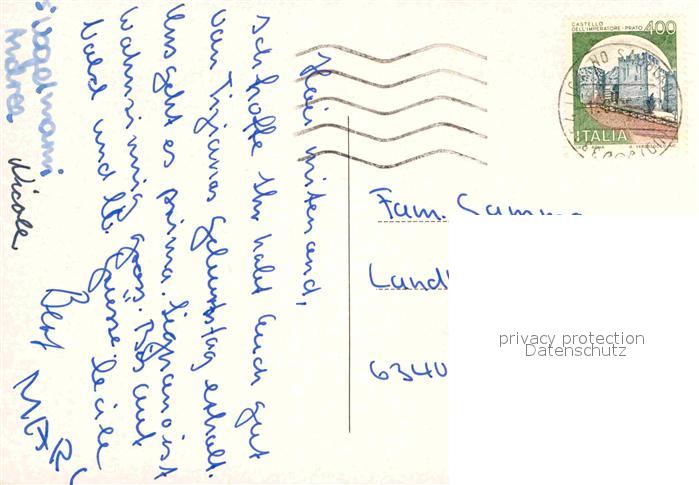 Hoi mitenand,
Ich hoffe Ihr habt Euch gut
von Tizianas Geburtstag erholt.
Uns geht es prima. Lignano ist
wahnsinnig gross. Bis
bald und lb. Grüsse. Cécile
Beat
MARC
Nicole
Andrea
CASTELLO
DELL'IMPERATORE-PRATO
400
ITALIA
Fam.
6340
privacy protection
Datenschutz